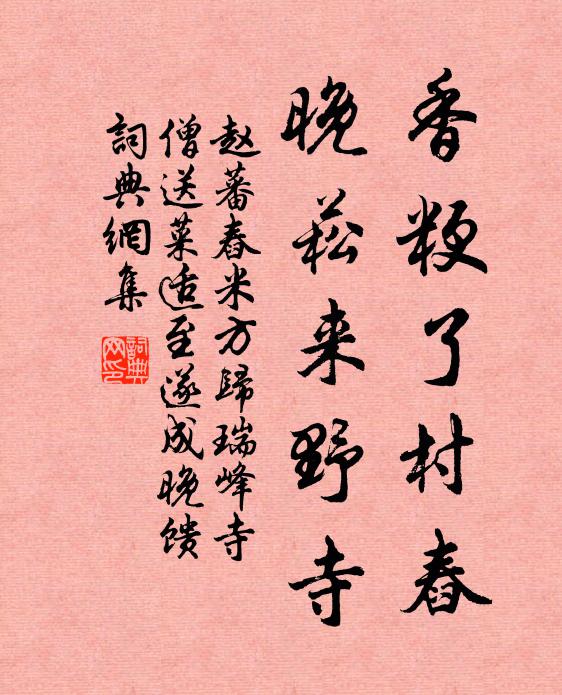 香粳了村舂
晚菘来野寺
赵蕃舂米方歸瑞峰寺
僧送菜适至遂成晚馈
詞典網集
詞典网印